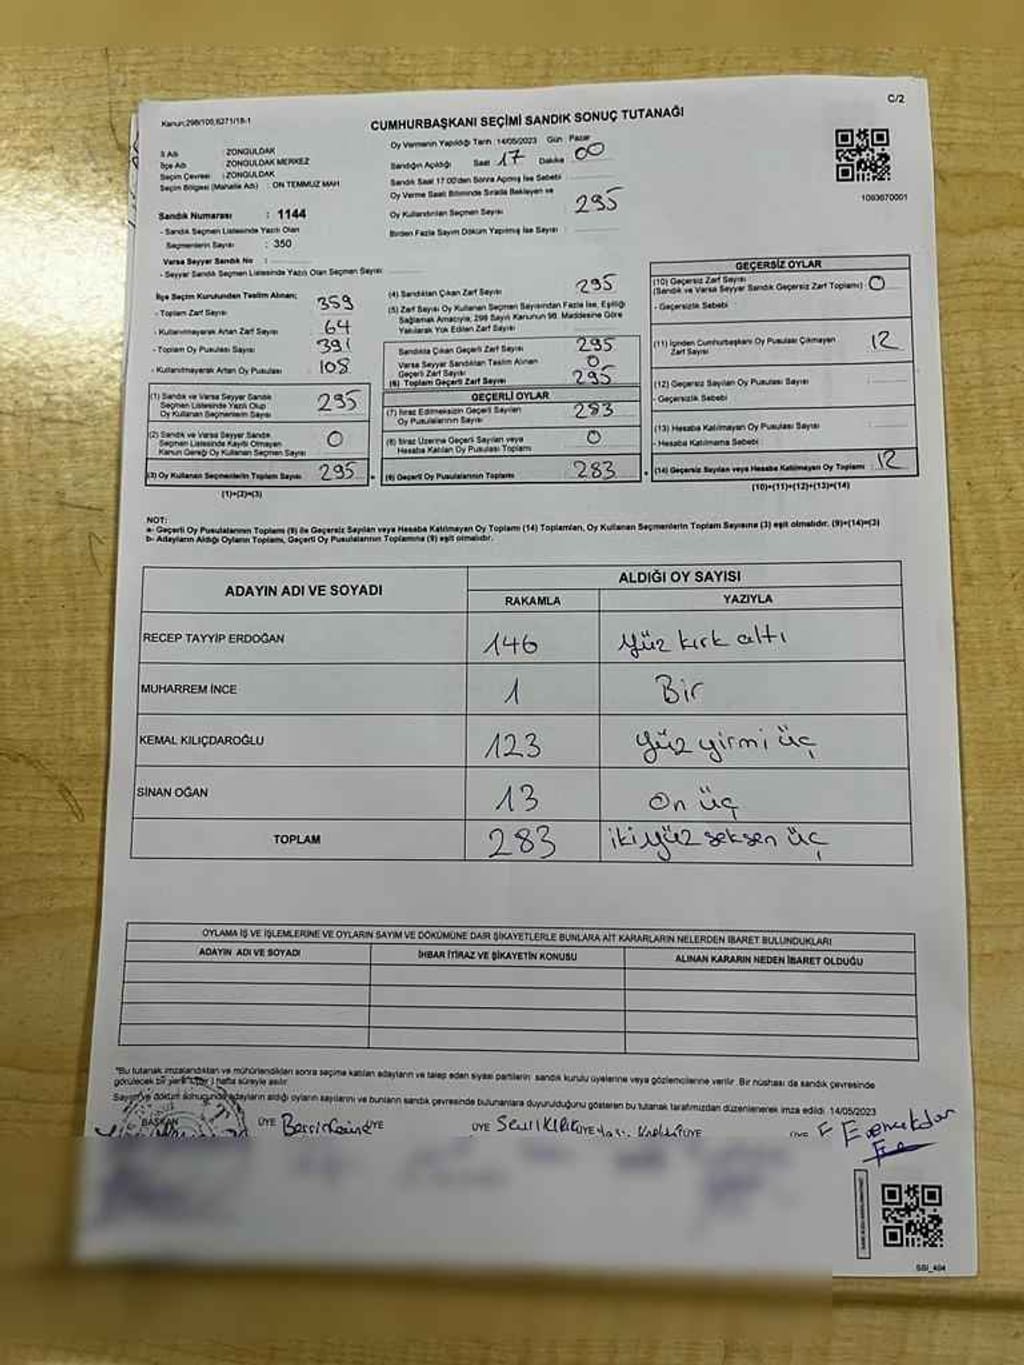 C/2
Kanun:298/105,6271/18-1
CUMHURBAŞKANI SEÇİMİ SANDIK SONUÇ TUTANAĞI
İl Adı : ZONGULDAK
İlçe Adı : ZONGULDAK MERKEZ
Seçim Çevresi : ZONGULDAK
Seçim Bölgesi (Mahalle Adı) : ON TEMMUZ MAH
Sandık Numarası : 1144
- Sandık Seçmen Listesinde Yazılı Olan
Seçmenlerin Sayısı : 350
Varsa Seyyar Sandık No :
- Seyyar Sandık Seçmen Listesinde Yazılı Olan Seçmen Sayısı
Oy Vermenin Yapıldığı Tarih : 14/05/2023 Gün : Pazar
Sandığın Açıldığı Saat : 17 Dakika 00
Sandık Saat 17:00'den Sonra Açılmış İse Sebebi
Oy Verme Saati Bitiminde Sırada Bekleyen ve
Oy Kullandırılan Seçmen Sayısı : 295
Birden Fazla Sayım Döküm Yapılmış İse Sayısı :
1093670001
İlçe Seçim Kurulundan Teslim Alınan;
- Toplam Zarf Sayısı 359
- Kullanılmayarak Artan Zarf Sayısı 64
- Toplam Oy Pusulası Sayısı 391
- Kullanılmayarak Artan Oy Pusulası 108
(1) Sandık ve Varsa Seyyar Sandık
Seçmen Listesinde Yazılı Olup
Oy Kullanan Seçmenlerin Sayısı 295
(2) Sandık ve Varsa Seyyar Sandık
Seçmen Listesinde Kaydı Olmayan
Kanun Gereği Oy Kullanan Seçmen Sayısı 0
(3) Oy Kullanan Seçmenlerin Toplam Sayısı 295
(1)+(2)=(3)
(4) Sandıktan Çıkan Zarf Sayısı 295
(5) Zarf Sayısı Oy Kullanan Seçmen Sayısından Fazla İse, Eşitliği
Sağlamak Amacıyla, 298 Sayılı Kanunun 98. Maddesine Göre
Yakılarak Yok Edilen Zarf Sayısı
Sandıkta Çıkan Geçerli Zarf Sayısı 295
Varsa Seyyar Sandıktan Teslim Alınan
Geçerli Zarf Sayısı 0
(6) Toplam Geçerli Zarf Sayısı 295
GEÇERLİ OYLAR
(7) İtiraz Edilmeksizin Geçerli Sayılan
Oy Pusulalarının Sayısı 283
(8) İtiraz Üzerine Geçerli Sayılan veya
Hesaba Katılan Oy Pusulası Toplamı 0
(9) Geçerli Oy Pusulalarının Toplamı 283
GEÇERSİZ OYLAR
(10) Geçersiz Zarf Sayısı
(Sandık ve Varsa Seyyar Sandık Geçersiz Zarf Toplamı) 0
- Geçersizlik Sebebi
(11) İçinden Cumhurbaşkanı Oy Pusulası Çıkmayan
Zarf Sayısı 12
(12) Geçersiz Sayılan Oy Pusulası Sayısı
- Geçersizlik Sebebi
(13) Hesaba Katılmayan Oy Pusulası Sayısı
- Hesaba Katılmama Sebebi
(14) Geçersiz Sayılan veya Hesaba Katılmayan Oy Toplamı 12
(10)+(11)+(12)+(13)=(14)
NOT:
a- Geçerli Oy Pusulalarının Toplamı (9) ile Geçersiz Sayılan veya Hesaba Katılmayan Oy Toplamı (14) Toplamları, Oy Kullanan Seçmenlerin Toplam Sayısına (3) eşit olmalıdır. (9)+(14)=(3)
b- Adayların Aldığı Oyların Toplamı, Geçerli Oy Pusulalarının Toplamına (9) eşit olmalıdır.
ADAYIN ADI VE SOYADI ALDIĞI OY SAYISI
RAKAMLA YAZIYLA
RECEP TAYYİP ERDOĞAN 146 Yüz kırk altı
MUHARREM İNCE 1 Bir
KEMAL KILIÇDAROĞLU 123 Yüz yirmi üç
SİNAN OĞAN 13 On üç
TOPLAM 283 iki yüz seksen üç
OYLAMA İŞ VE İŞLEMLERİNE VE OYLARIN SAYIM VE DÖKÜMÜNE DAİR ŞİKAYETLERLE BUNLARA AİT KARARLARIN NELERDEN İBARET BULUNDUKLARI
ADAYIN ADI VE SOYADI İHBAR İTİRAZ VE ŞİKAYETİN KONUSU ALINAN KARARIN NEDEN İBARET OLDUĞU
*Bu tutanak imzalandıktan ve mühürlendikten sonra seçime katılan adayların ve talep eden siyasi partilerin sandık kurulu üyelerine veya gözlemcilerine verilir. Bir nüshası da sandık çevresinde
görülecek bir yere 1 (bir) hafta süreyle asılır.
Sayım ve döküm sonucunda adayların aldığı oyların sayılarını ve bunların sandık çevresinde bulunanlara duyurulduğunu gösteren bu tutanak tarafımızdan düzenlenerek imza edildi. 14/05/2023
BAŞKAN ÜYE ÜYE ÜYE ÜYE
SSI_404